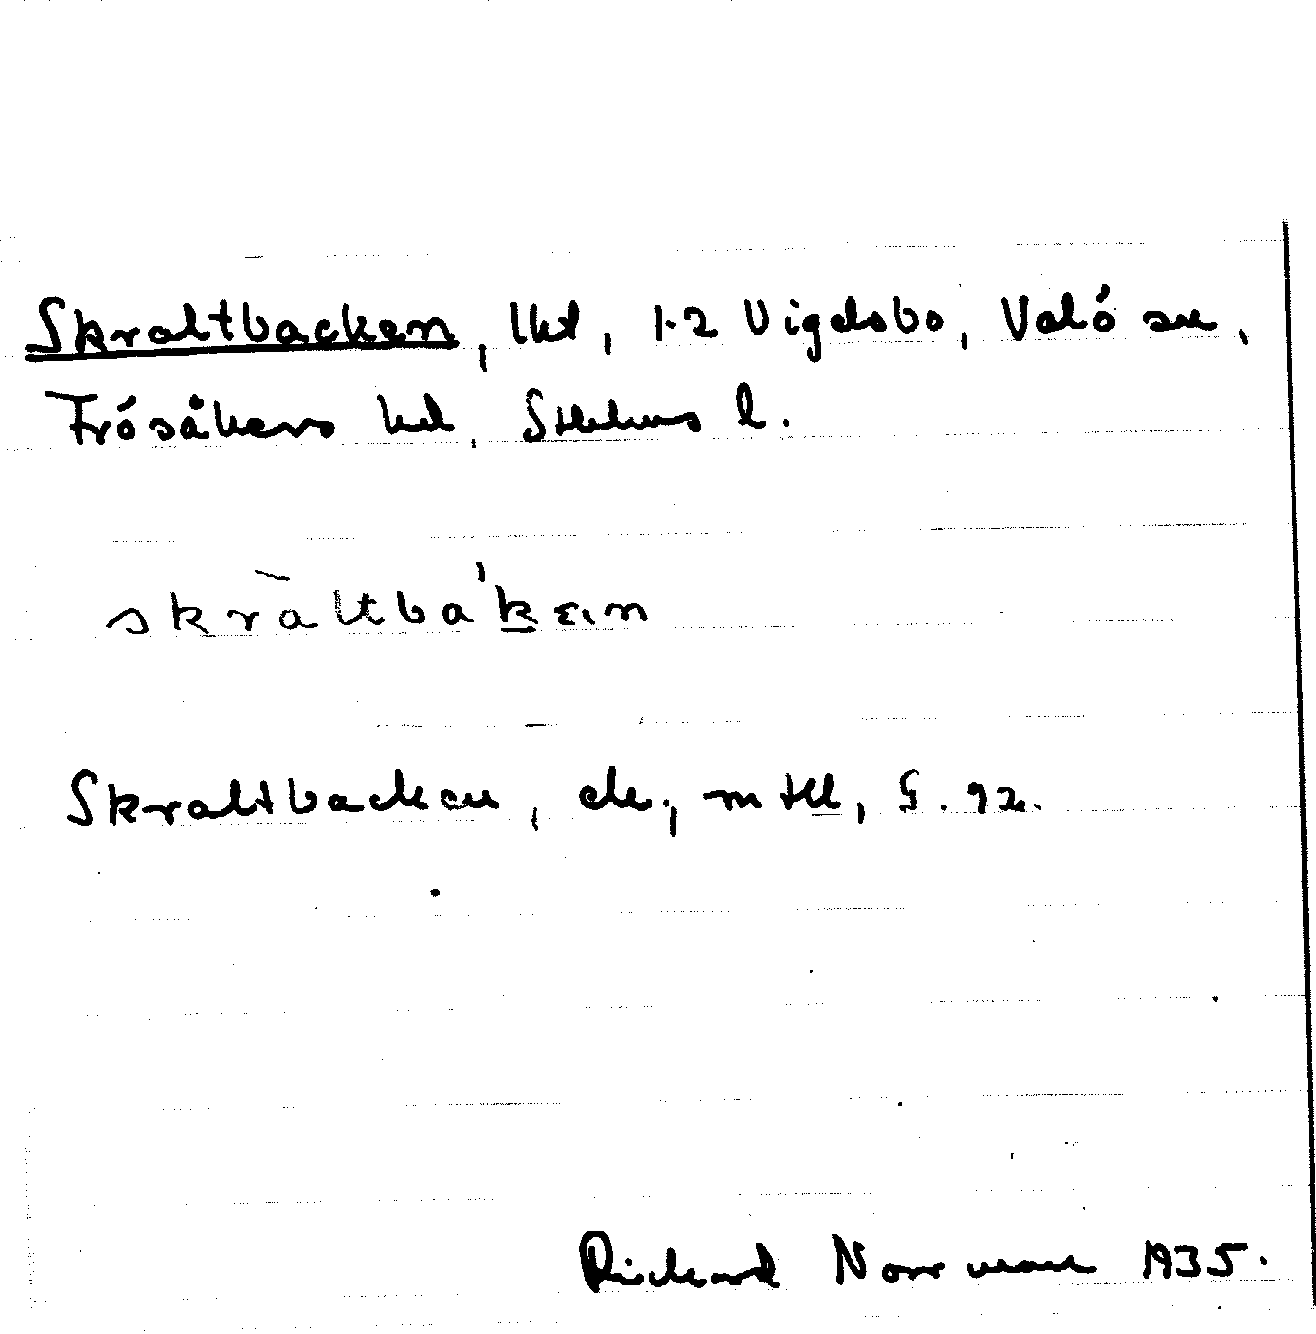 Skraltbacken, lht, 1-2 Vigelsbo, Valö sn,
Frösåkers hd, Sthlms l.
skràltbá'kein
Skraltbacken, ek., m tHl, G. 92.
Richard Norrman 1935.